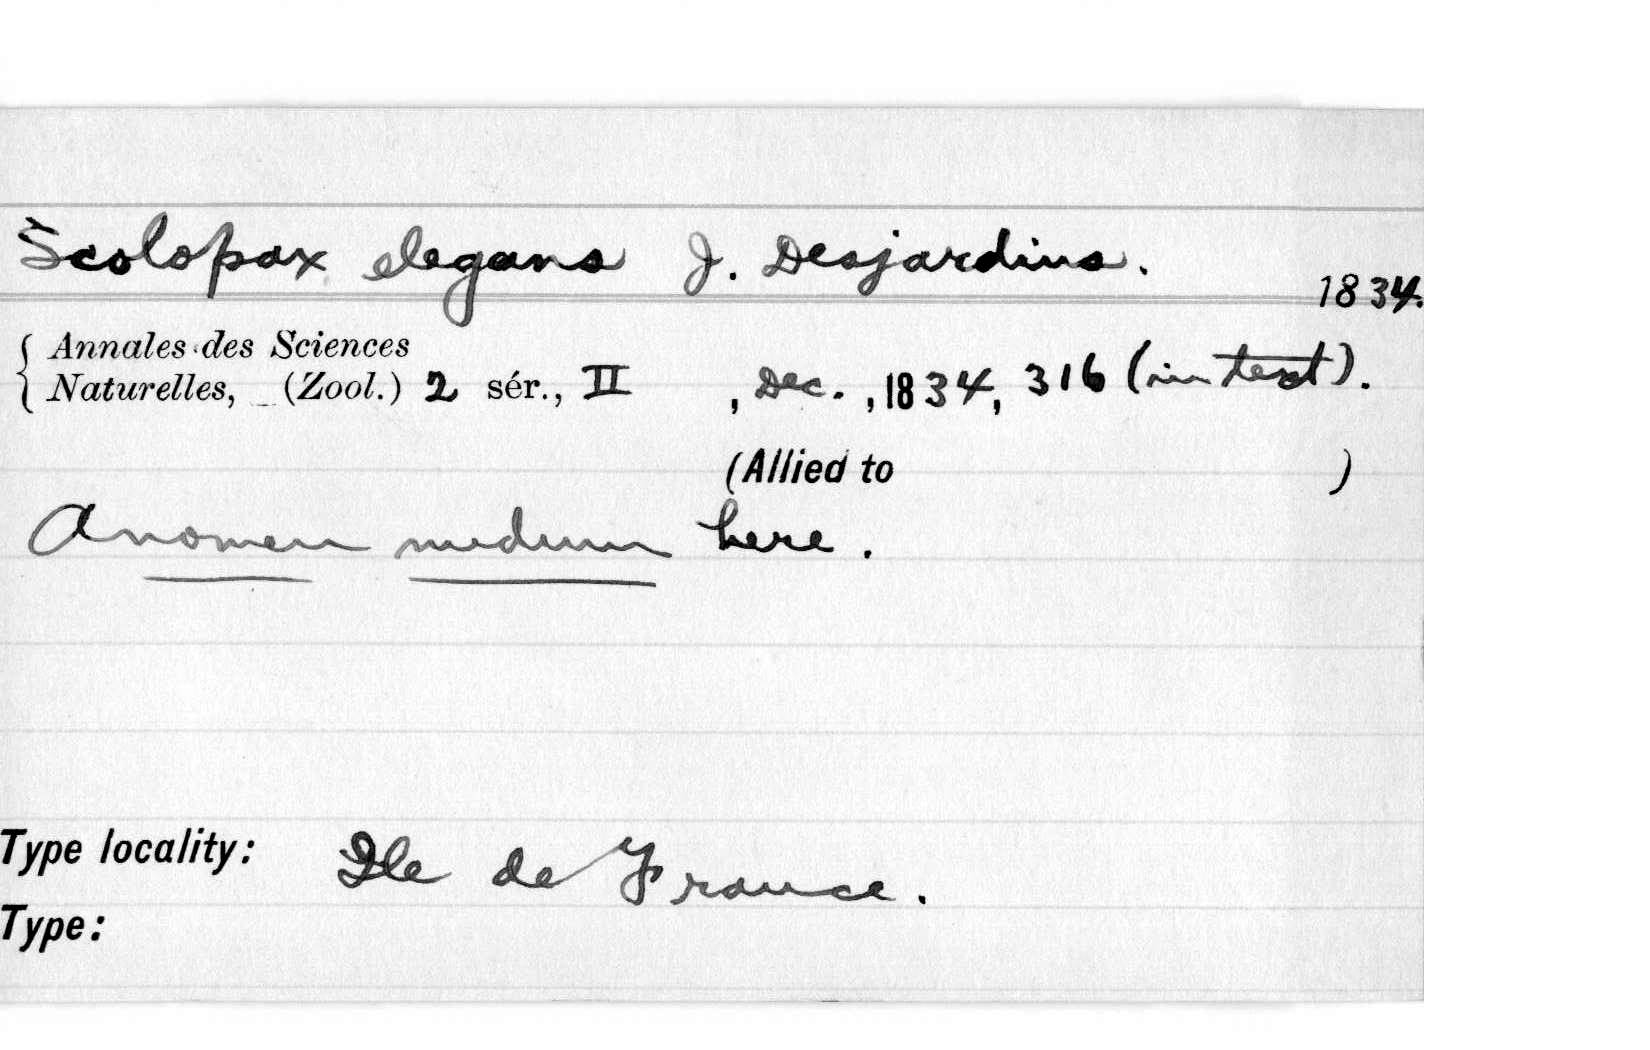 Scolopax elegans J. Desjardins.
1834.
Annales des Sciences
Naturelles, (Zool.) 2 sér., II , Dec. , 1834, 316 (in text).
(Allied to )
A nomen nudum here.
Type locality: Ile de France.
Type: